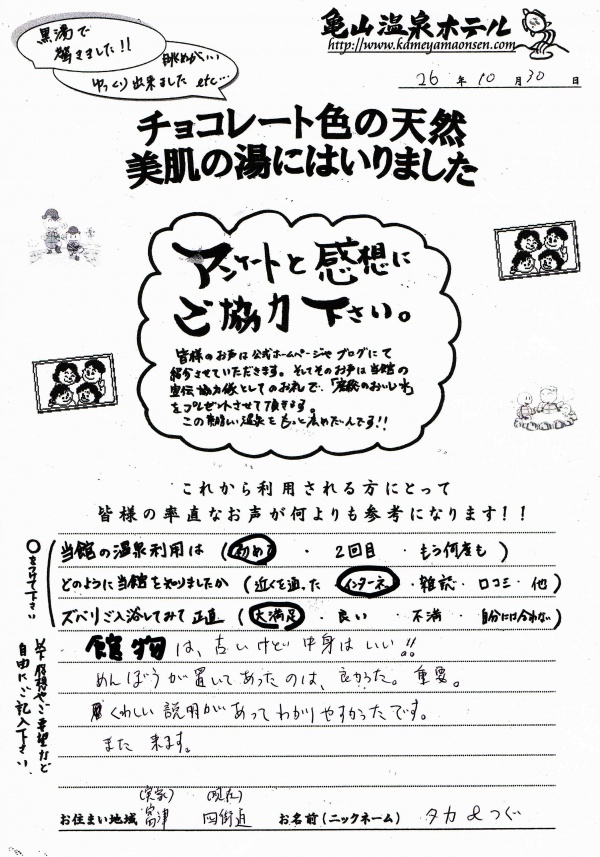 黒湯で
驚きました!!
眺めがいい
ゆっくり出来ました etc…
亀山温泉ホテル
http://www.kameyamaonsen.com
26年10月30日
チョコレート色の天然
美肌の湯にはいりました
アンケートと感想に
ご協力下さい。
皆様のお声は公式ホームページやブログにて
紹介させていただきます。そしてそのお声は当館の
宣伝協力係としてのお礼で、「のおいしい水」
をプレゼントさせて頂きます。
この素晴しい温泉をもっと広めたいんです!!
これから利用される方にとって
皆様の率直なお声が何よりも参考になります!!
○をつけて下さい
当館の温泉利用は (初めて ・ 2回目 ・ もう何度も)
どのように当館を知りましたか (近くを通った ・ インターネット ・ 雑誌 ・ 口コミ ・ 他)
ズバリご入浴してみて正直 (大満足 ・ 良い ・ 不満 ・ 自分には合わない)
以下感想やご要望など
自由にご記入下さい。
館物は、古いけど中身はいい!!
めんぼうが置いてあったのは、良かった。重要。
くわしい説明があってわかりやすかったです。
また来ます。
(実家) (現在)
お住まい地域 富津 四街道 お名前(ニックネーム) タカ&つぐ